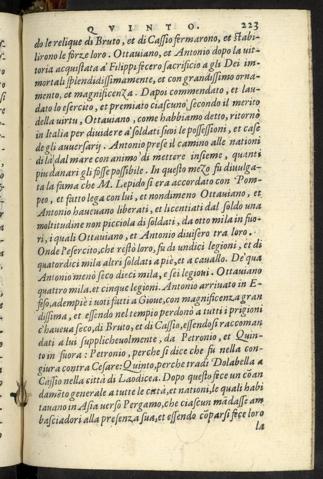 QVINTO. 223
do le relique di Bruto, et di Cassio fermarono, et stabi-
lirono le forze loro. Ottauiano, et Antonio dopo la uit-
toria acquistata à Filippi fecero sacrificio a gli Dei im-
mortali splendidissimamente, et con grandissimo orna-
mento, et magnificenza. Dapoi commendato, et lau-
dato lo esercito, et premiato ciascuno secondo il merito
della uirtu, Ottauiano, come habbiamo detto, ritornò
in Italia per diuidere a' soldati suoi le possessioni, et case
de gli auuersarij. Antonio prese il camino alle nationi
di là dal mare con animo di mettere insieme, quanti
piu danari gli fosse possibile. In questo mezo fu diuulga-
ta la fama che M. Lepido si era accordato con Pom-
peo, et fatto lega con lui, et nondimeno Ottauiano, et
Antonio haueuano liberati, et licentiati dal soldo una
moltitudine non picciola di soldati, da otto mila in fuo-
ri, i quali Ottauiano, et Antonio diuisero tra loro.
Onde l'esercito, che restò loro, fu di undici legioni, et di
quatordici mila altri soldati a piè, et a cauallo. De qua
Antonio menò seco dieci mila, e sei legioni. Ottauiano
quattro mila, et cinque legioni. Antonio arriuato in E-
feso, adempiè i uoti fatti a Gioue, con magnificenza gran
dissima, et essendo nel tempio perdonò a tutti i prigioni
c'haueua seco, di Bruto, et di Cassio, essendosi raccoman
dati a lui supplicheuolmente, da Petronio, et Quin-
to in fuora: Petronio, perche si dice che fu nella con-
giura contra Cesare: Quinto, perche tradì Dolabella a
Cassio nella città di Laodicea. Dopo questo fece un cōan
damēto generale a tutte le città, et nationi, le quali habi
tauano in Asia uerso Pergamo, che ciascun mādasse am
basciadori alla presenza sua, et essendo cōparsi fece loro
la